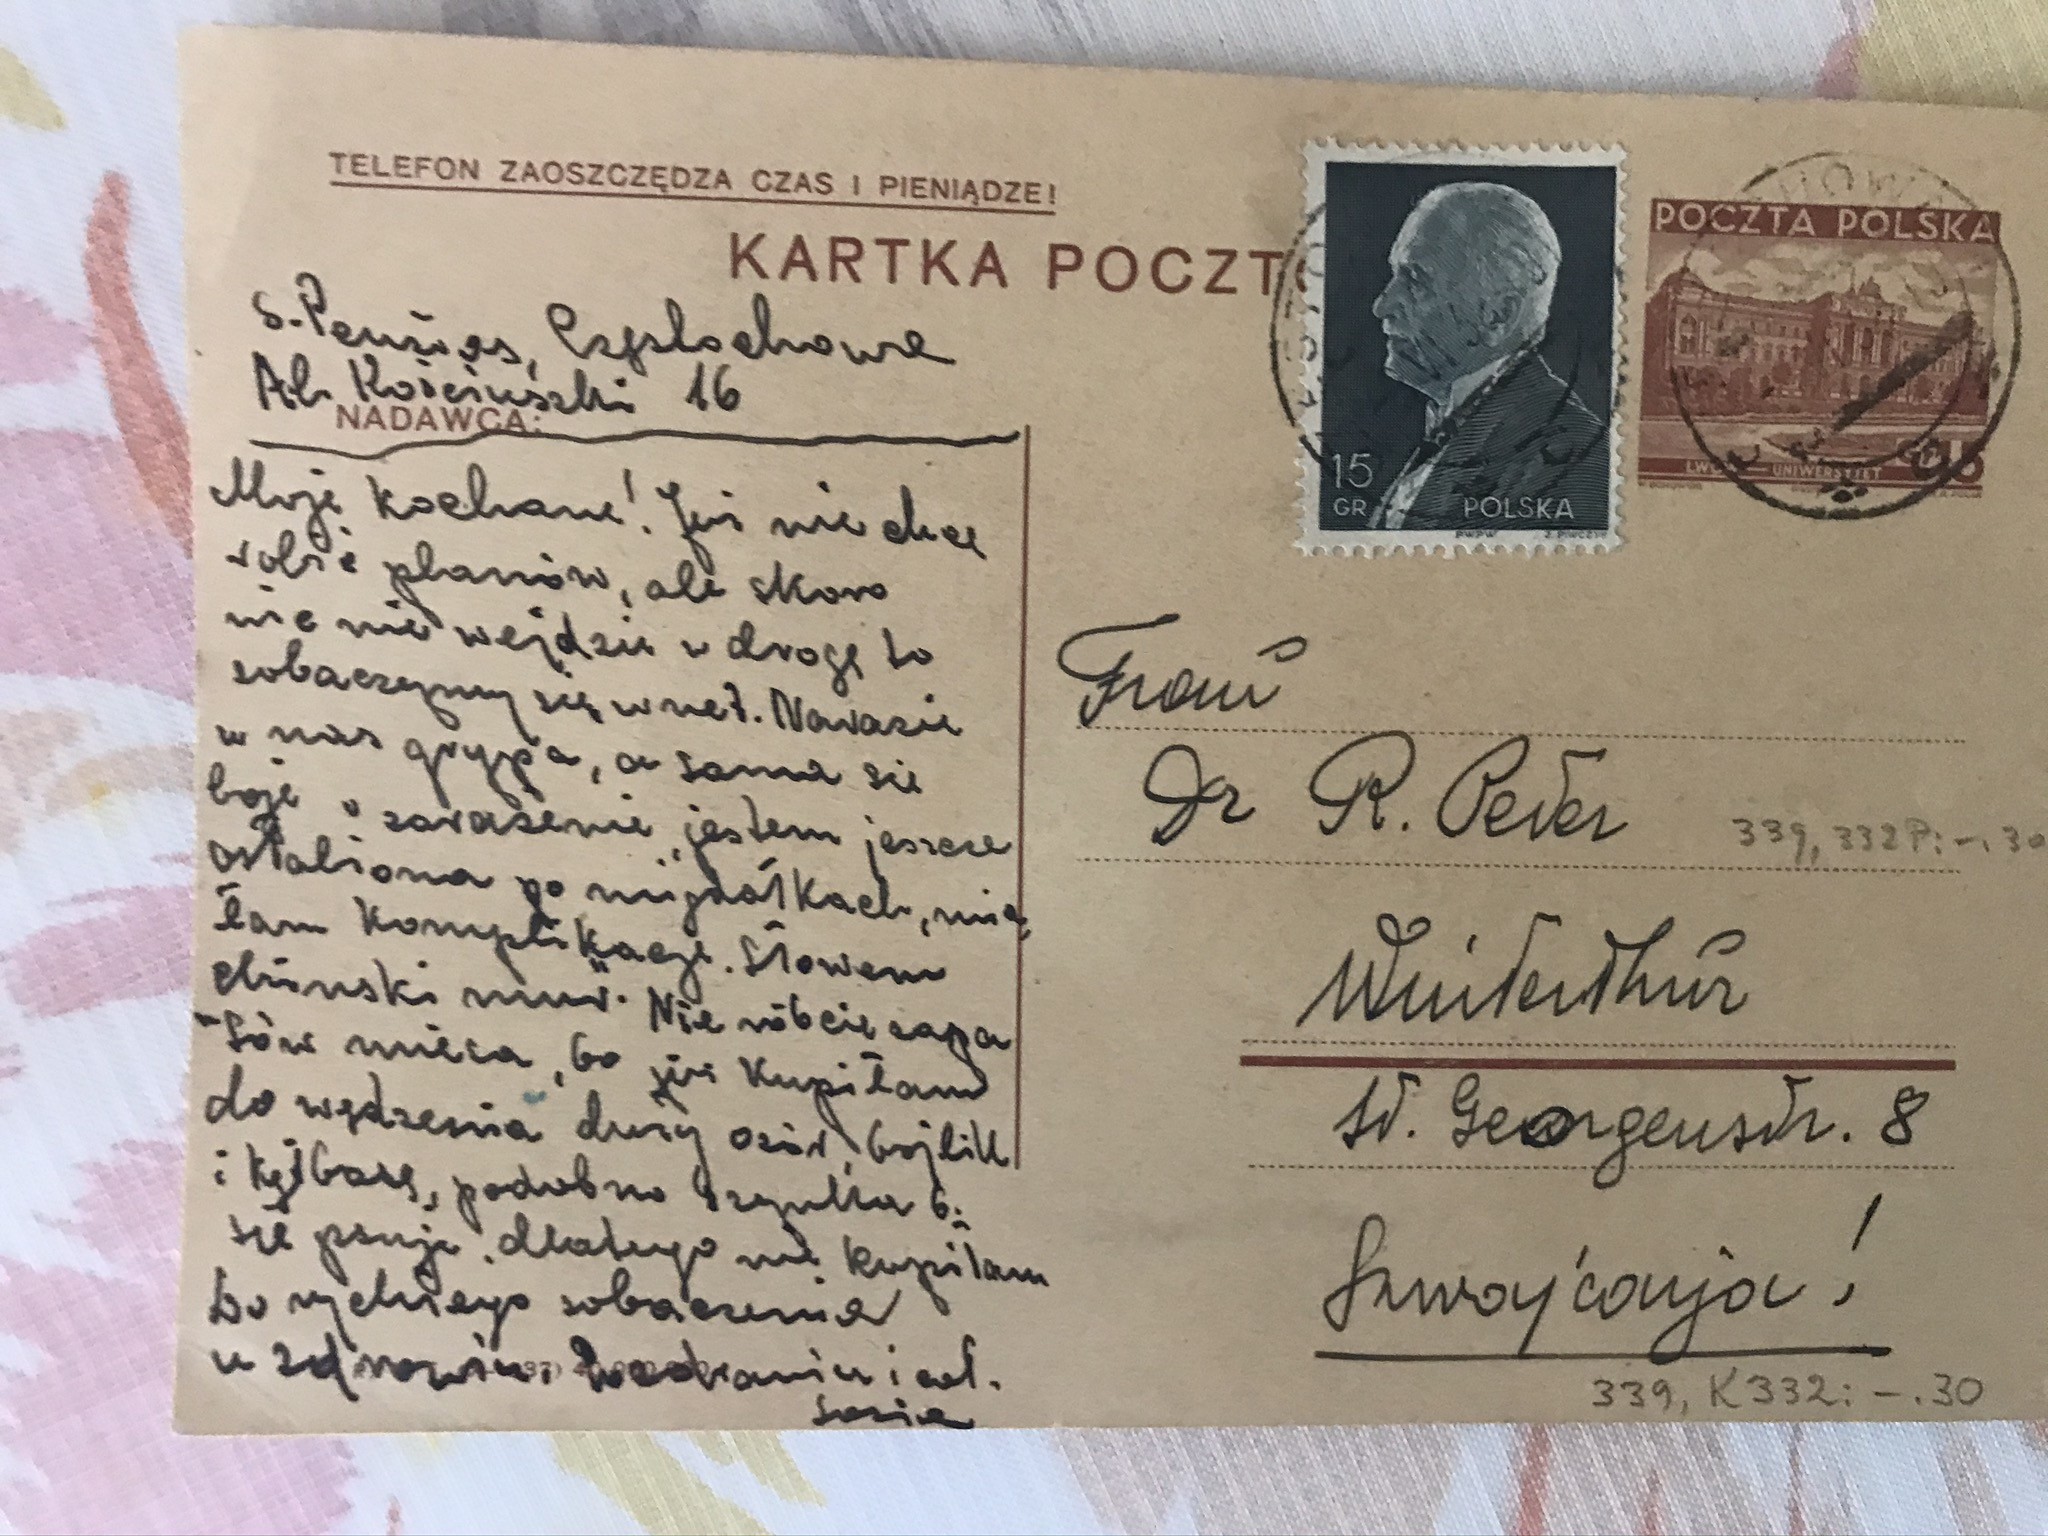 TELEFON ZAOSZCZĘDZA CZAS I PIENIĄDZE!
KARTKA POCZT
S. Częstochowa
Al. Kościuszki 16
NADAWCA:
Moje kochane! Już nie chcę
robić planów, ale skoro
nic nie wejdzie w drogę to
zobaczymy się wnet. Narazie
u nas grypa, a sama się
boję o zarażenie, jestem jeszcze
osłabiona po migdałkach, mia
łam komplikacje. Słowem
chiński mur. Nie róbcie zapa
sów mięsa, bo już kupiłam
do wędzenia duży ozór, bójtik
i kiełbasę, podobno szynka b.
się psuje, dlatego nie kupiłam
Do rychłego zobaczenia
w zdrowiu i cał.
Zosia
15
GR
POLSKA
PWPW
POCZTA POLSKA
LWÓW UNIWERSYTET
GR 15
Frau
Dr R. Peter
339, 332P: -.30
Winterthur
St. Georgenstr. 8
Szwajcarja!
339, K332: -.30